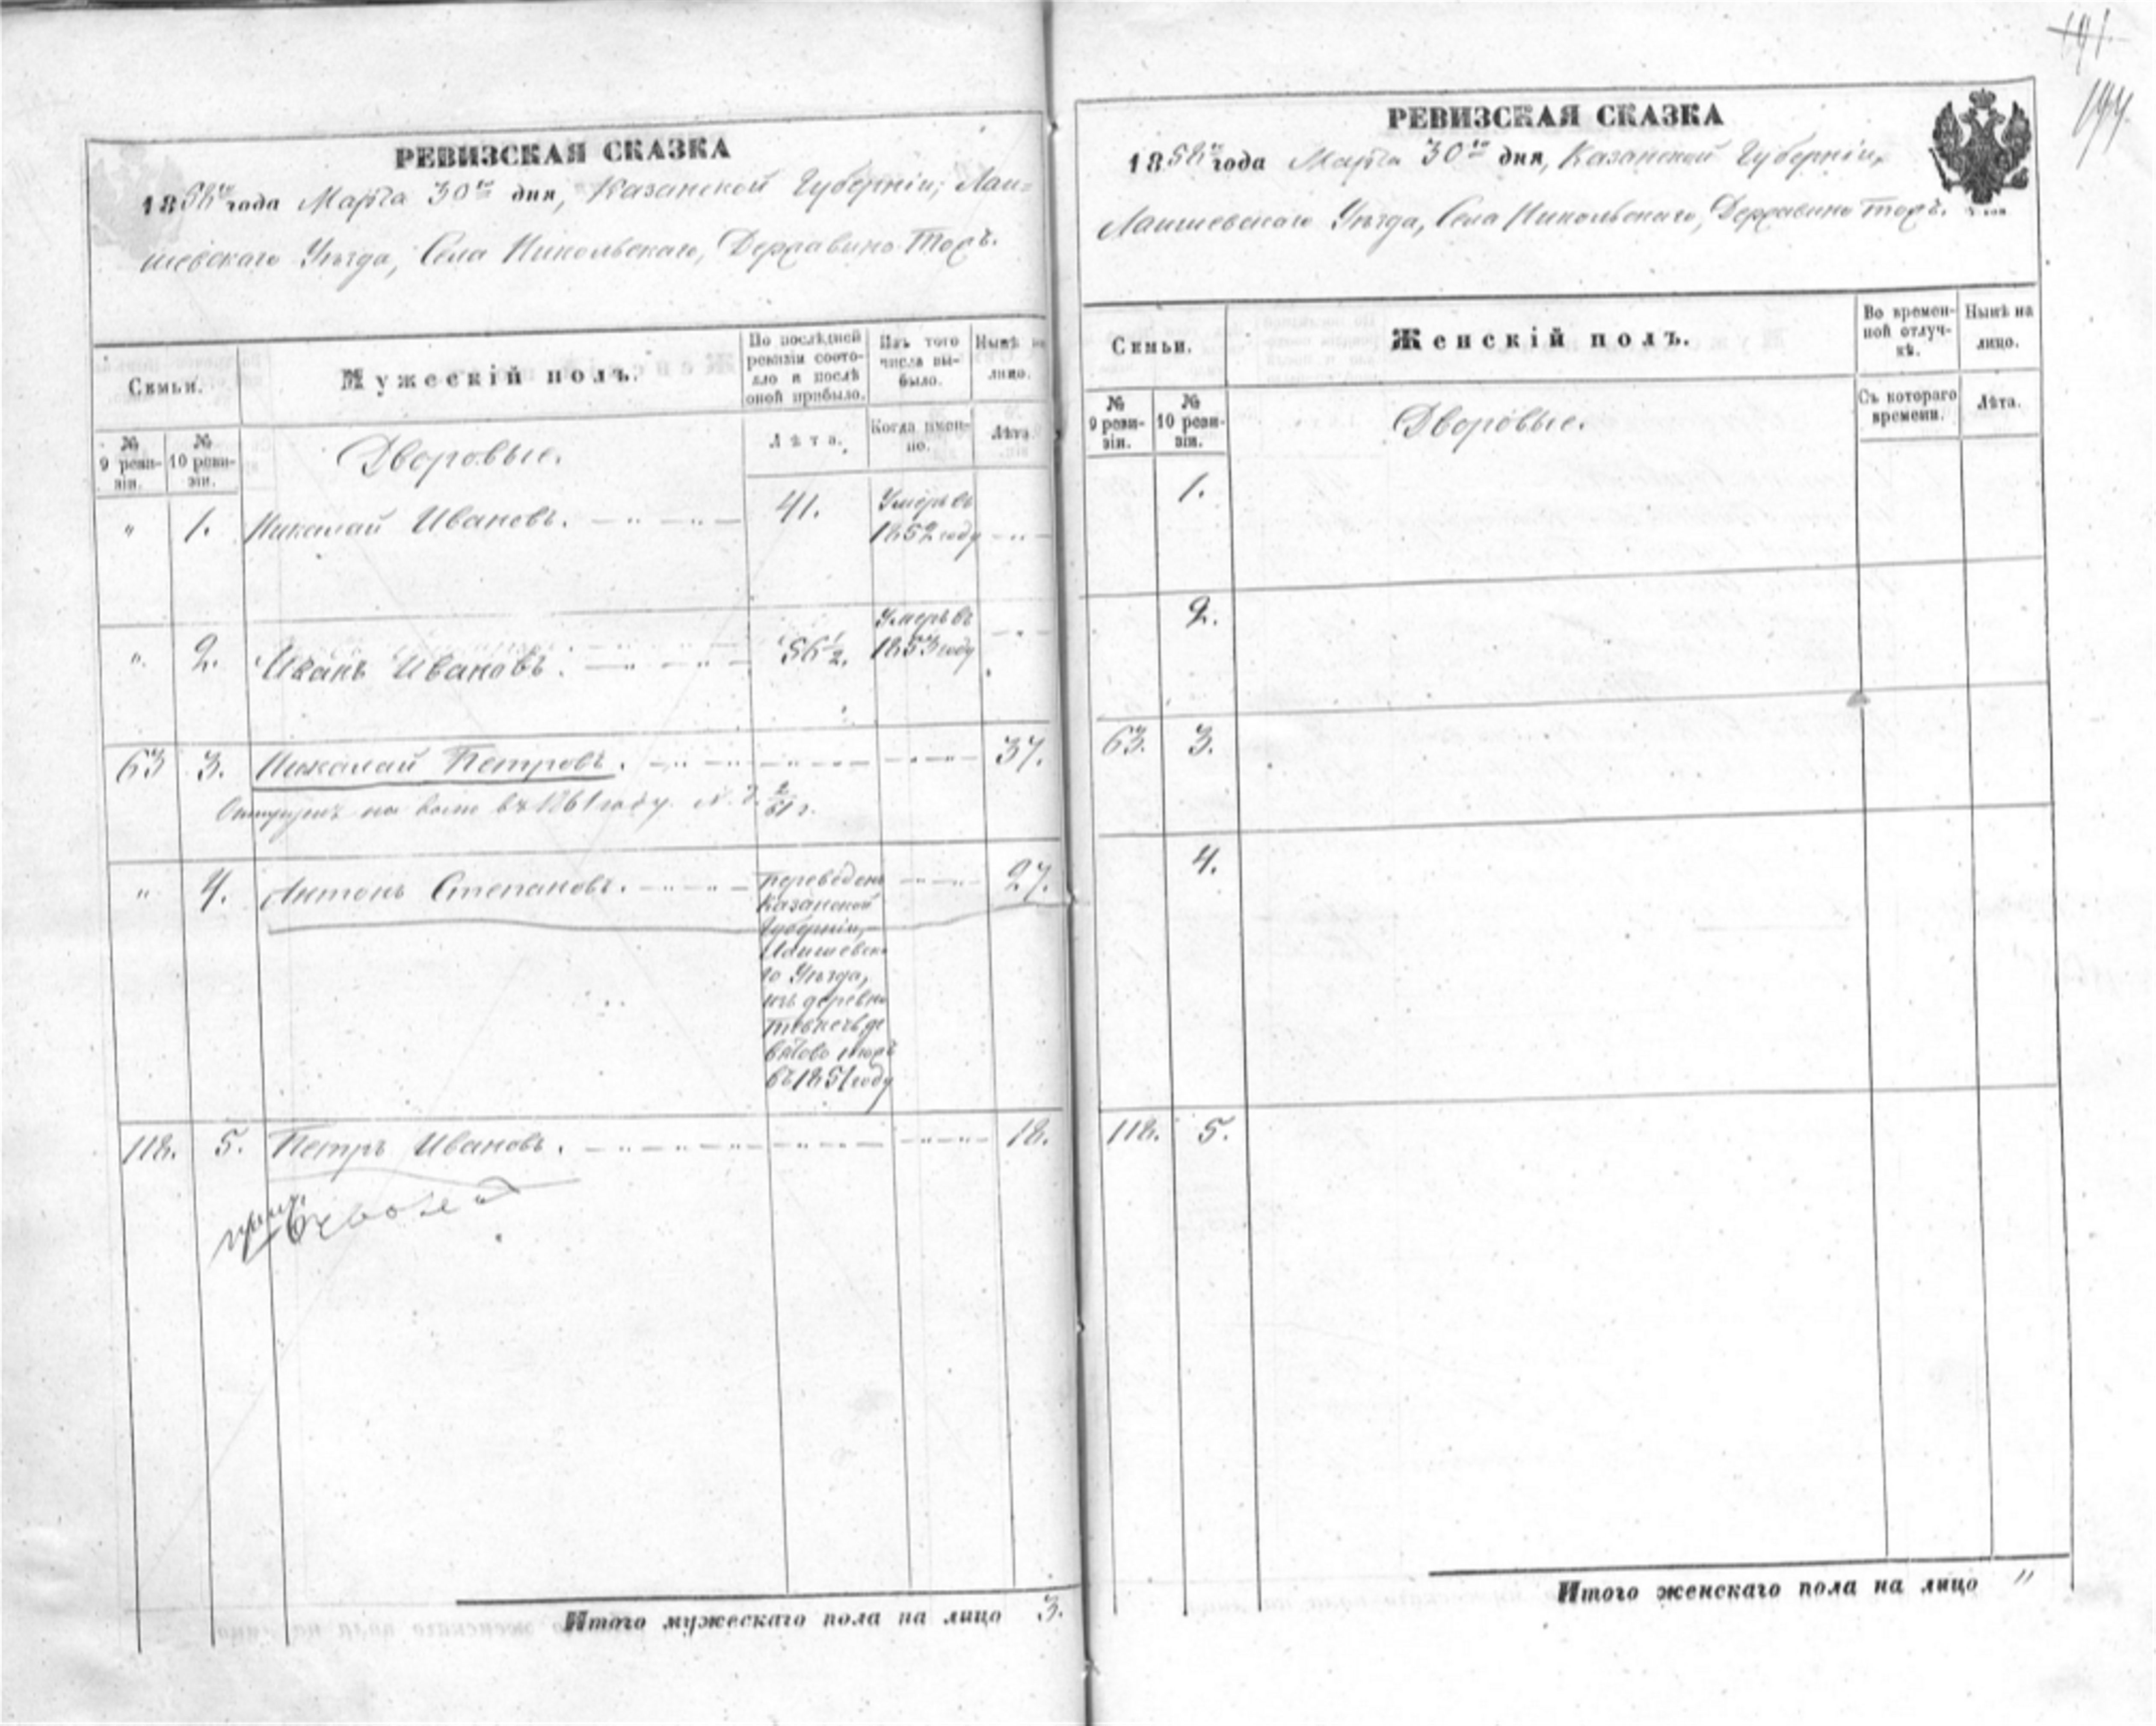 191.
194
РЕВИЗСКАЯ СКАЗКА
1858го года Марта 30го дня, Казанской Губерніи, Лаи=
шевскаго Уѣзда, Села Никольскаго, Державино тожъ.
Семьи.
Мужескій полъ.
По послѣдней ревизіи состояло и послѣ оной прибыло.
Изъ того числа выбыло.
Нынѣ на лицо.
№ 9 ревизіи.
№ 10 ревизіи.
Дворовые.
Лѣта.
Когда именно.
Лѣта.
" 1. Николай Ивановъ. 41. Умеръ въ 1852 году
" 2. Иванъ Ивановъ. 56½. Умеръ въ 1853 году
63 3. Николай Петровъ. 37.
Отпущенъ на волю въ 1861 году. 2/61 г.
" 4. Антонъ Степановъ. 27.
переведенъ
Казанской
Губерніи,
Лаишевска
го Уѣзда,
изъ деревни
тожъ
въ 1851 году
118. 5. Петръ Ивановъ. 18.
Итого мужескаго пола на лицо 3.
РЕВИЗСКАЯ СКАЗКА
1858го года Марта 30го дня, Казанской Губерніи,
Лаишевскаго Уѣзда, Села Никольскаго, Державино тожъ.
Семьи.
Женскій полъ.
Во временной отлучкѣ.
Нынѣ на лицо.
№ 9 ревизіи.
№ 10 ревизіи.
Дворовые.
Съ котораго времени.
Лѣта.
1.
2.
63. 3.
4.
118. 5.
Итого женскаго пола на лицо "